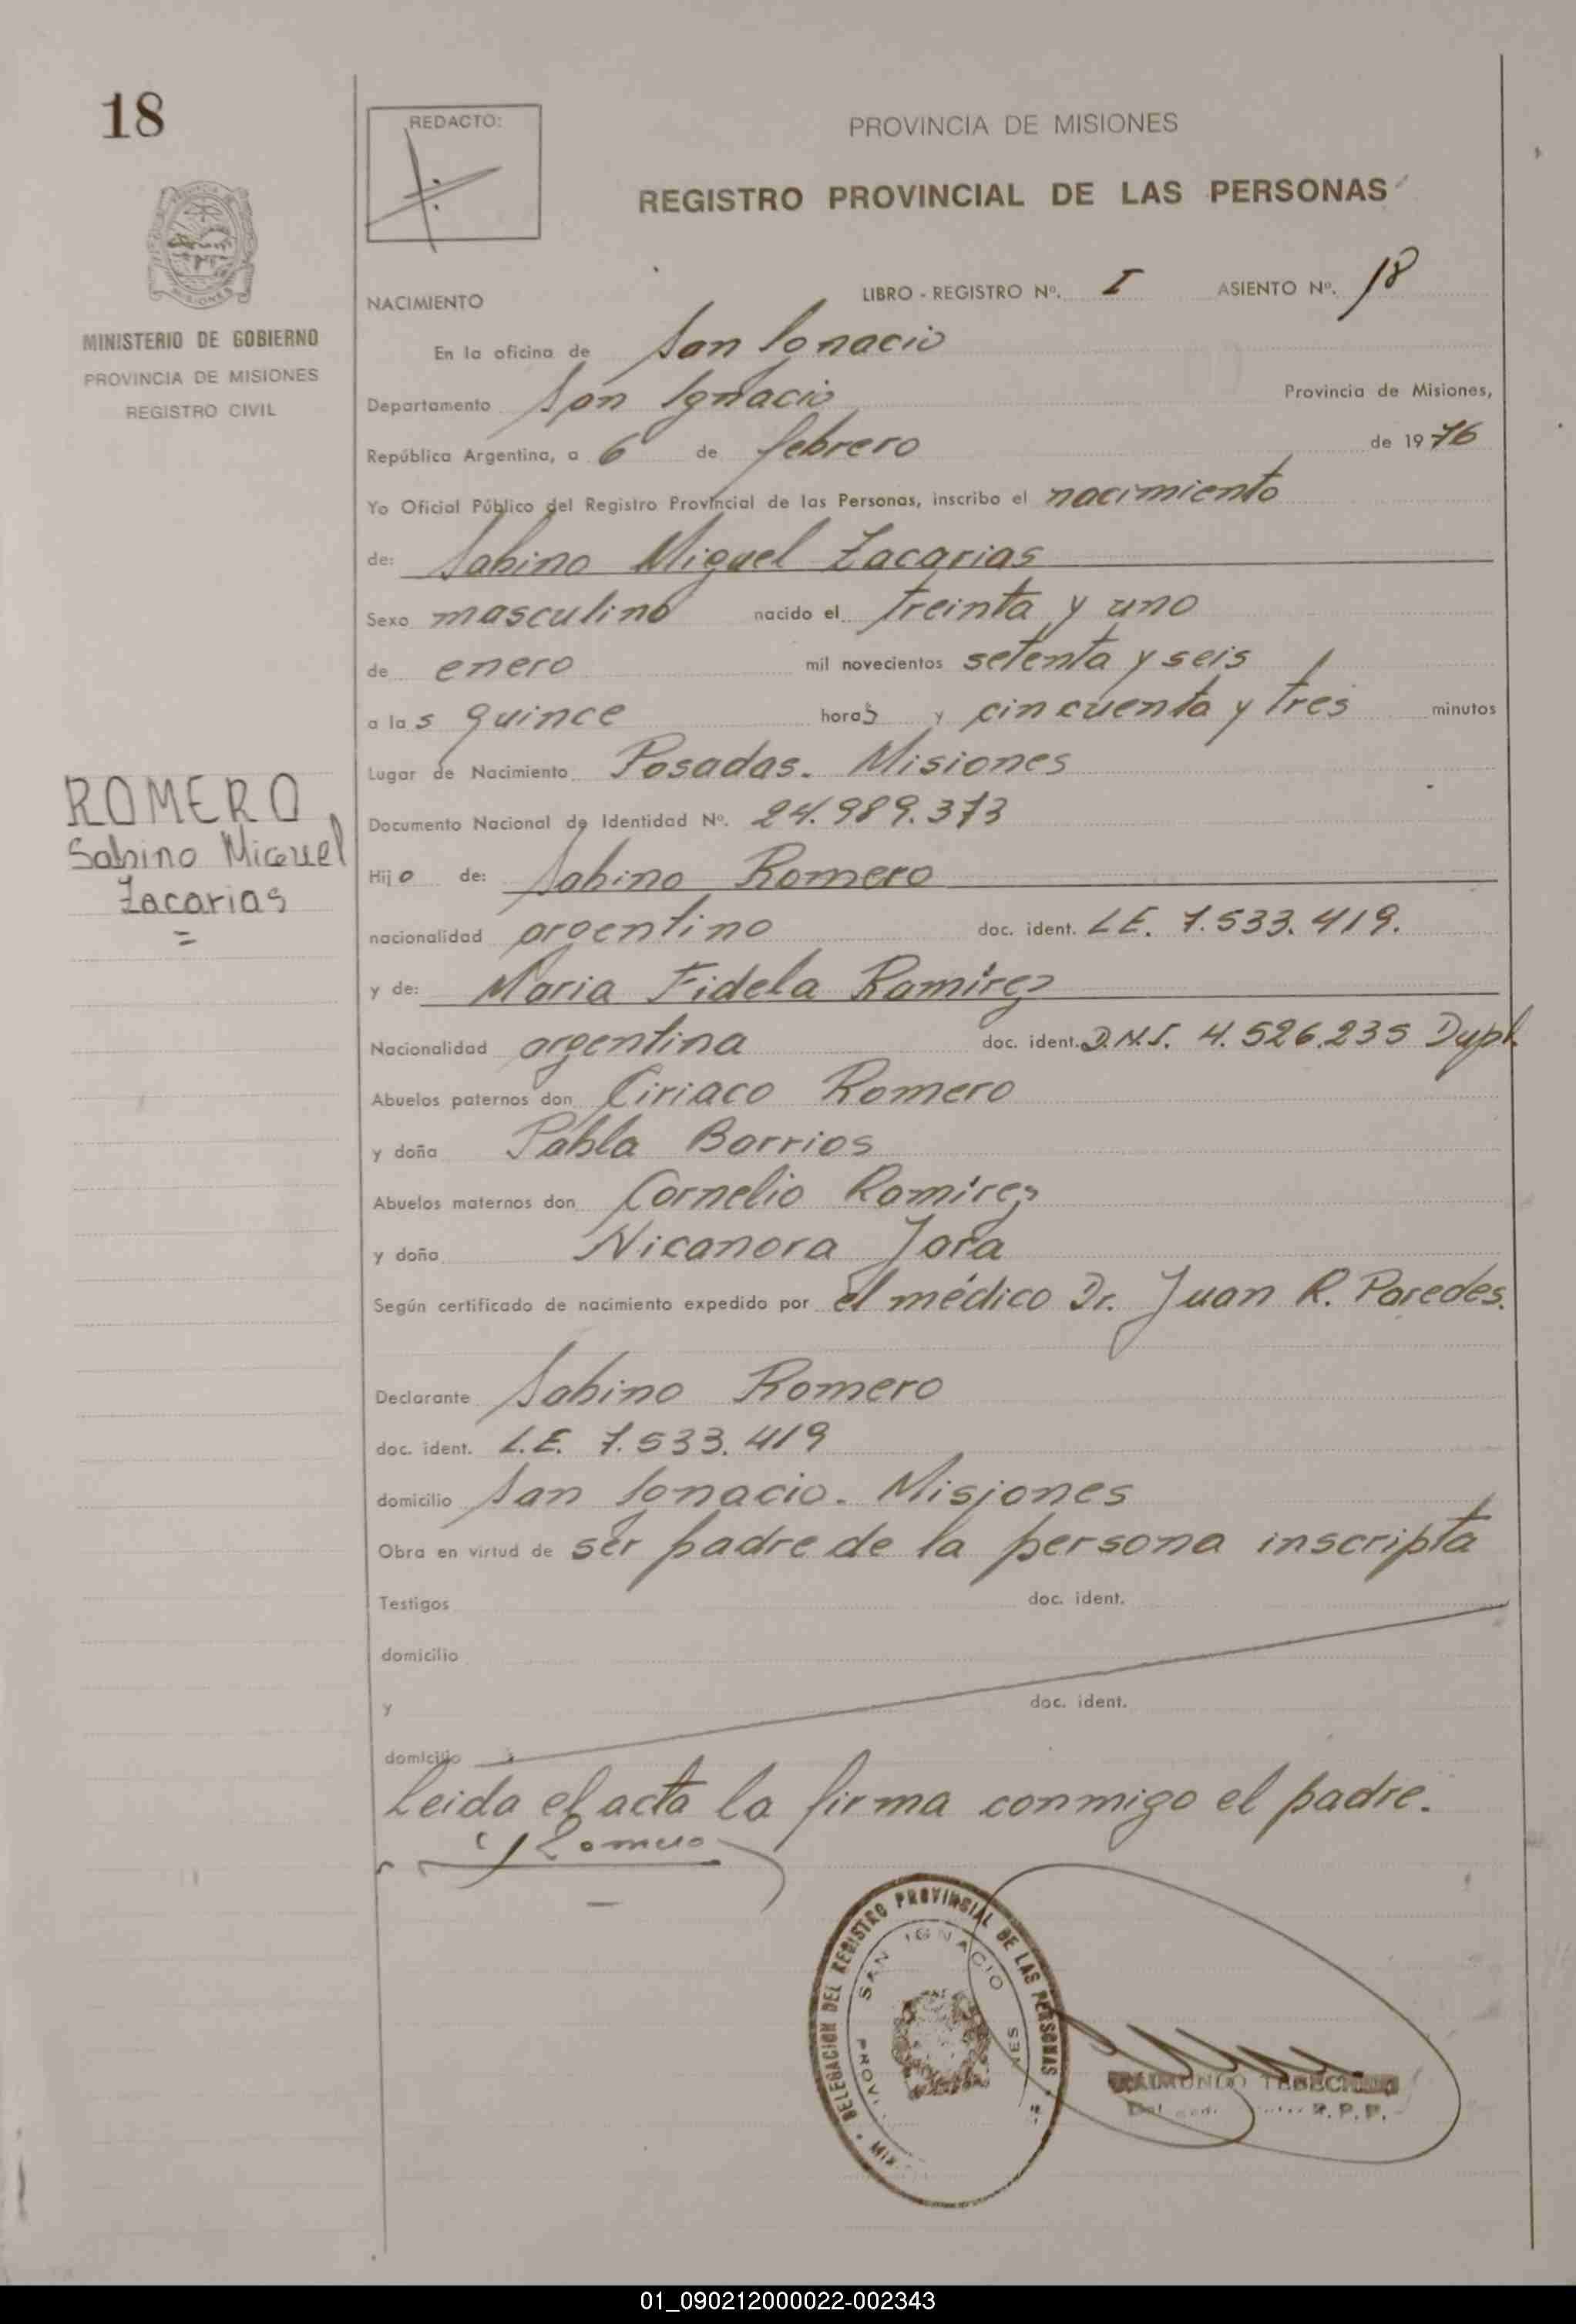 18
REDACTO:
PROVINCIA DE MISIONES
REGISTRO PROVINCIAL DE LAS PERSONAS
MINISTERIO DE GOBIERNO
PROVINCIA DE MISIONES
REGISTRO CIVIL
NACIMIENTO LIBRO - REGISTRO Nº. I ASIENTO Nº. 18
En la oficina de San Ignacio
Departamento San Ignacio Provincia de Misiones,
República Argentina, a 6 de febrero de 1976
Yo Oficial Público del Registro Provincial de las Personas, inscribo el nacimiento
de: Sabino Miguel Zacarias
Sexo masculino nacido el treinta y uno
de enero mil novecientos setenta y seis
a las quince horas y cincuenta y tres minutos
Lugar de Nacimiento Posadas. Misiones
ROMERO
Sabino Miguel
Zacarias
Documento Nacional de Identidad Nº. 24.989.373
Hijo de: Sabino Romero
nacionalidad argentino doc. ident. LE. 7.533.419.
y de: Maria Fidela Ramírez
Nacionalidad argentina doc. ident. D.N.I. 4.526.235 Dupl.
Abuelos paternos don Ciriaco Romero
y doña Pabla Barrios
Abuelos maternos don Cornelio Ramírez
y doña Nicanora Jara
Según certificado de nacimiento expedido por el médico Dr. Juan R. Paredes.
Declarante Sabino Romero
doc. ident. L.E. 7.533.419
domicilio San Ignacio. Misiones
Obra en virtud de ser padre de la persona inscripta
Testigos doc. ident.
domicilio
y doc. ident.
domicilio
Leida el acta la firma conmigo el padre.
Romero
DELEGACION DEL REGISTRO PROVINCIAL DE LAS PERSONAS
SAN IGNACIO
RAIMUNDO
R. P. P.
01_090212000022-002343